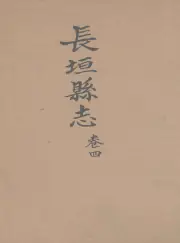 長垣縣志
卷四